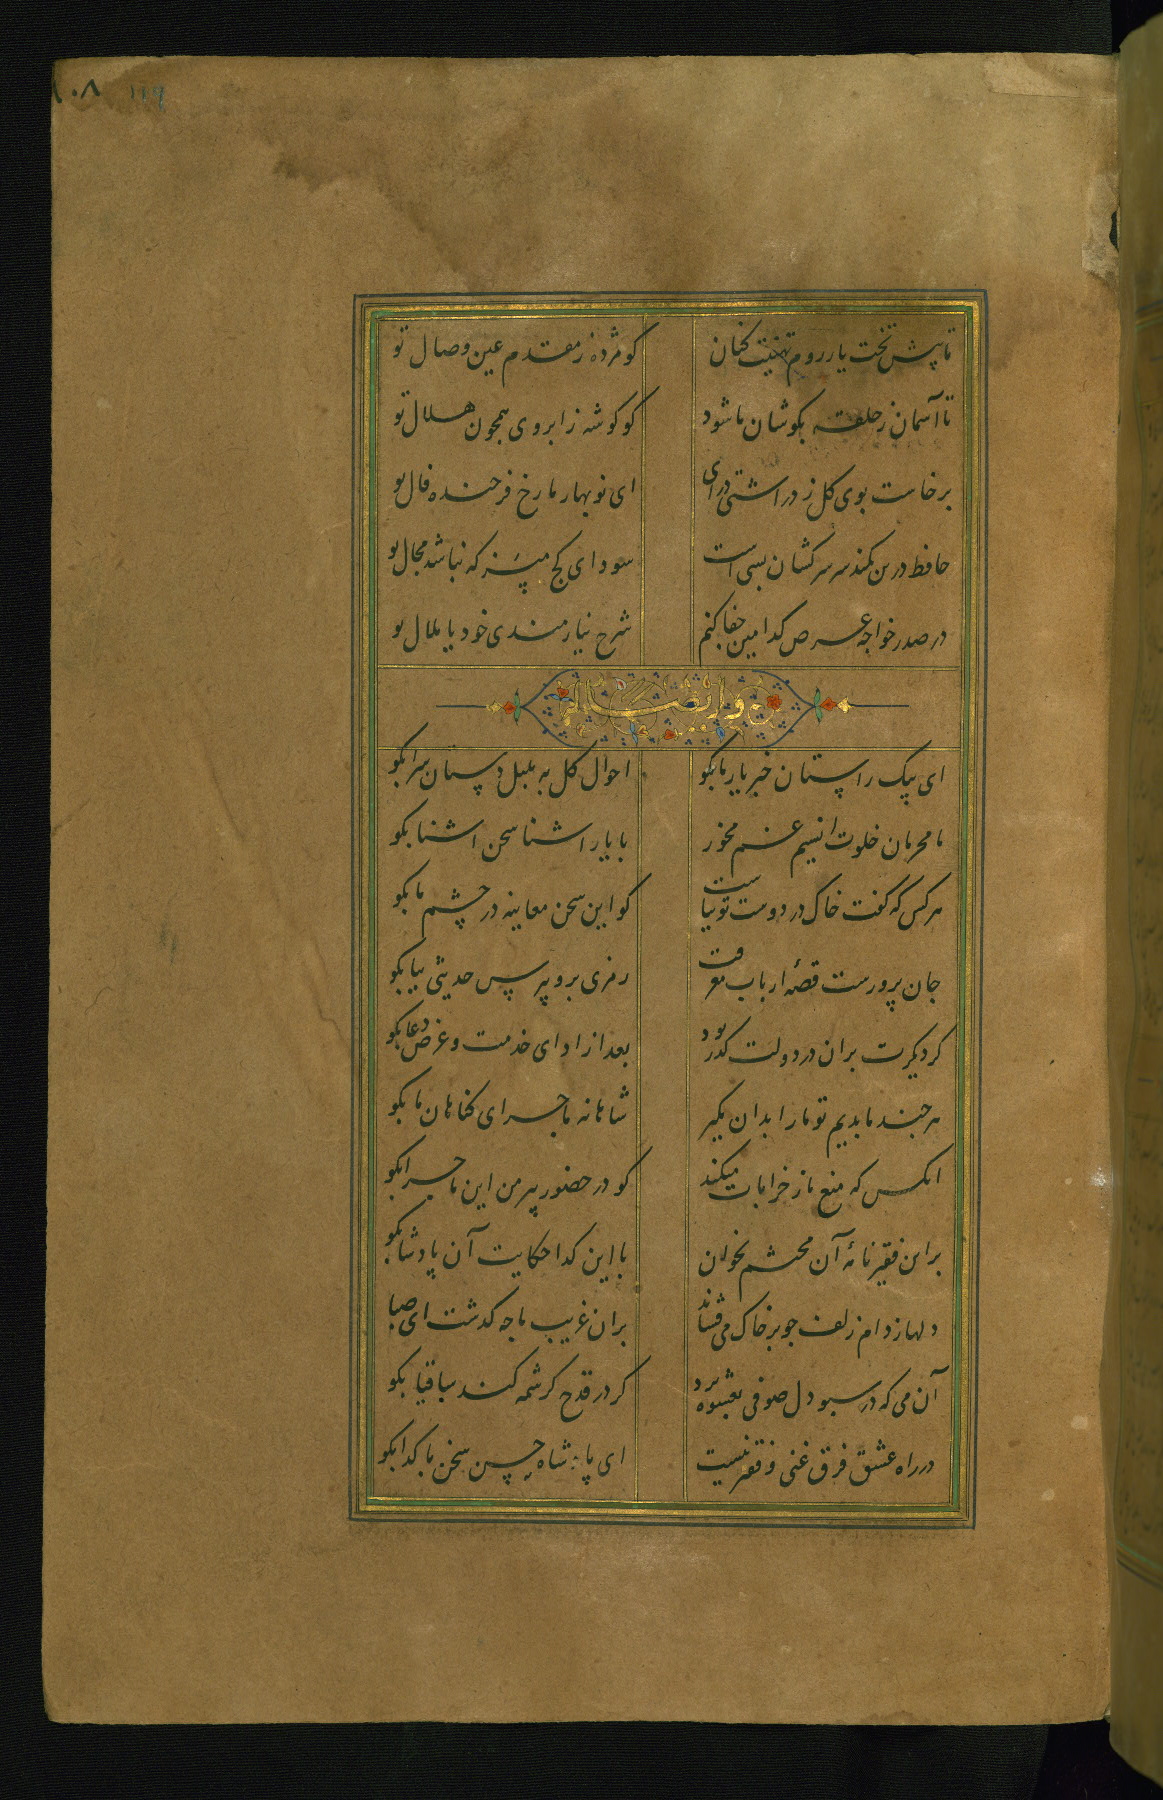 ١٠٨ ١١٩
تا پیش تخت یار روم تهنیت کنان کو مژدهٔ ز مقدم عین وصال تو
تا آسمان ز حلقه بکوشان ما شود کو کوشه ز ابروی همچون هلال تو
برخاست بوی کل ز در اشتی درای ای نوبهار ما رخ فرخنده فال تو
حافظ درین کمند سر سرکشان بسی است سودای کج مپز که نباشد مجال تو
در صدر خواجه عرض کدامین جفا کنم شرح نیازمندی خود یا ملال تو
و ایضا له
ای پیک راستان خبر یار ما بکو احوال کل به بلبل دستان سرا بکو
ما محرمان خلوت انسیم غم مخور با یار اشنا سخن اشنا بکو
هر کس که کفت خاک در دوست توتیاست کو این سخن معاینه در چشم ما بکو
جان پرورست قصهٔ ارباب معرفت رمزی برو بپرس حدیثی بیا بکو
کر دیکرت بران در دولت کذر بود بعد از ادای خدمت و عرض دعا بکو
هر چند ما بدیم تو ما را بدان مکیر شاهانه ماجرای کناهان ما بکو
انکس که منع ما ز خرابات میکند کو در حضور پیر من این ماجرا بکو
بر این فقیر نامهٔ آن محتشم بخوان با این کدا حکایت آن پادشا بکو
دلها ز دام زلف چو بر خاک می فشاند بران غریب ما چه کذشت ای صبا
آن می که در سبو دل صوفی بعشوه برد کر در قدح کرشمه کند ساقیا بکو
در راه عشق فرق غنی و فقیر نیست ای پادشاه حسن سخن با کدا بکو